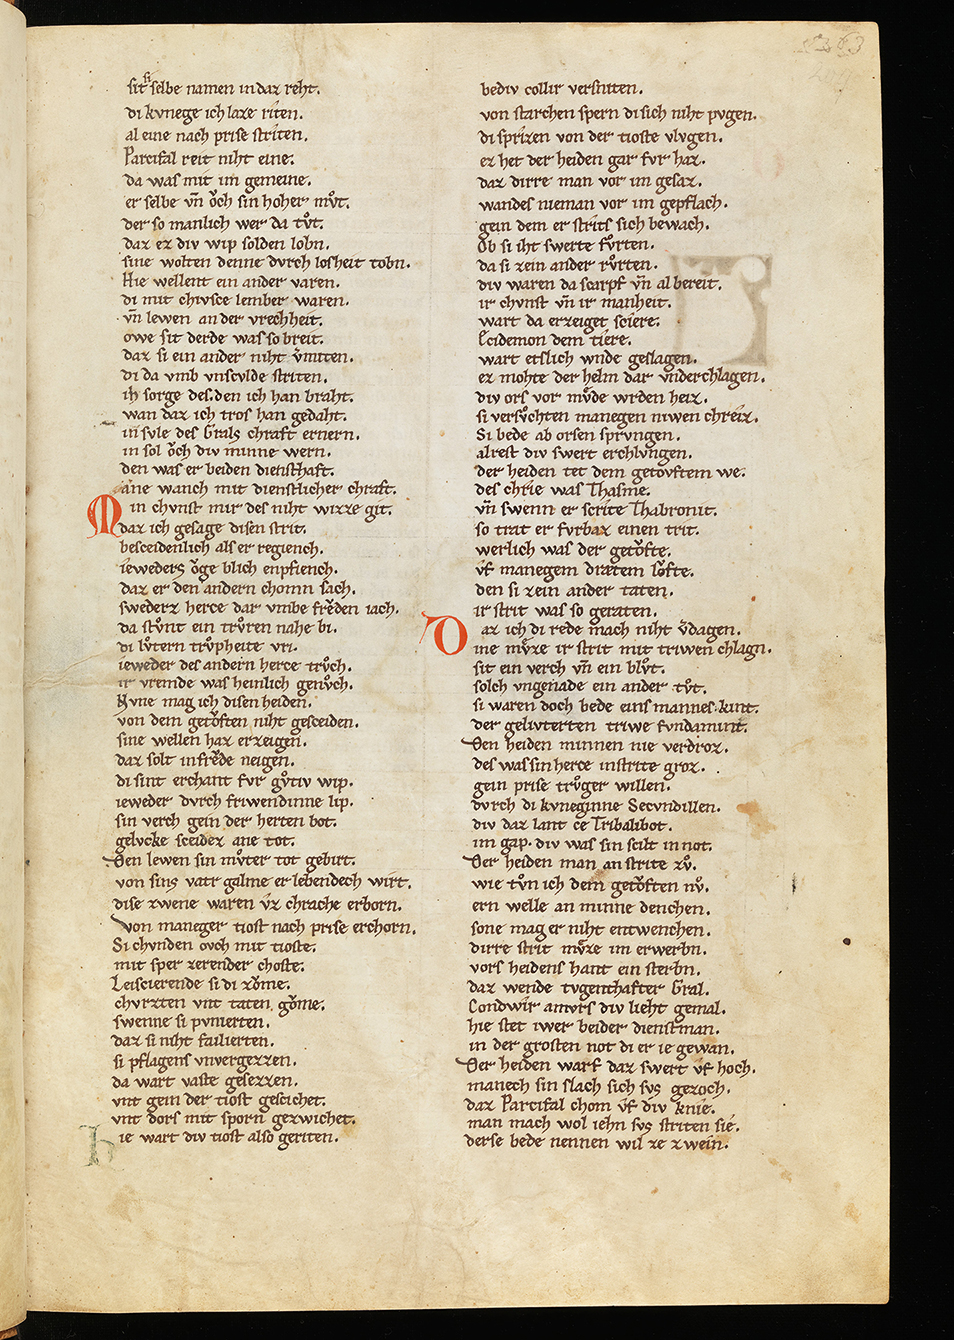 sit si selbe namen in daz reht.
di kvnege ich laze riten.
al eine nach prise striten.
Parcifal reit niht eine.
da was mit im gemeine.
er selbe vn̄ oͮch sin hoher mvͦt.
der so manlich wer da tvͦt.
daz ez div wip solden lobn.
sine wolten denne dvrch losheit tobn.
Hie wellent ein ander varen.
di mit chivsce lember waren.
vn̄ lewen an der vrechheit.
owe sit derde was so breit.
daz si ein ander niht v̓miten.
di da vmb vnscvlde striten.
ih sorge des. den ich han braht.
wan daz ich tros han gedaht.
in svle des Grals chraft ernern.
in sol oͮch div minne wern.
den was er beiden diensthaft.
ane wanch mit dienstlicher chraft.
Min chvnst mir des niht wizze git.
daz ich gesage disen strit.
besceidenlich als er regiench.
ieweders oͮge blich enpfiench.
daz er den andern chomn sach.
swederz herce dar vmbe freͮden iach.
da stvͦnt ein trvͦren nahe bi.
di lvtern trvͦpheite vri.
ieweder des andern herce trvͦch.
ir vremde was heinlich genvͦch.
Nvne mag ich disen heiden.
von dem getoͮften niht gesceiden.
sine wellen haz erzeigen.
daz solt in freͮde neigen.
di sint erchant fvr gvͦtiv wip.
ieweder dvrch friwendinne lip.
sin verch gein der herten bot.
gelvcke sceidez ane tot.
Den lewen sin mvͦter tot gebirt.
von sins vatr galme er lebendech wirt.
dise zwene waren v̓z chrache erborn.
von maneger tiost nach prise erchorn.
Si chvnden ovch mit tioste.
mit sper zerender choste.
Leiscierende si di zoͮme.
chvrzten vnt taten goͮme.
swenne si pvnierten.
daz si niht failierten.
si pflagens vnvergezzen.
da wart vaste gesezzen.
vnt gein der tiost gescichet.
vnt dors mit sporn gezwichet.
hie wart div tiost also geriten.
bediv collir versniten.
von starchen spern di sich niht pvgen.
di sprizen von der tioste vlvgen.
ez het der heiden gar fvr haz.
daz dirre man vor im gesaz.
wandes nieman vor im gepflach.
gein dem er strits sich bewach.
Ob si iht swerte fvͦrten.
da si zein ander rvͦrten.
div waren da scarpf vn̄ al bereit.
ir chvnst vn̄ ir manheit.
wart da erzeiget sciere.
Ecidemon dem tiere.
wart etslich wnde geslagen.
ez mohte der helm dar vnder chlagen.
div ors vor mvͦde wrden heiz.
si versvͦchten manegen niwen chreiz.
Si bede ab orsen sprvngen.
alrest div swert erchlvngen.
der heiden tet dem getovftem we.
des chrie was Thasme.
vn̄ swenn er scrite Thabronit.
so trat er fvrbaz einen trit.
werlich was der getoͮfte.
vͦf manegem dratem loͮfte.
den si zein ander taten.
ir strit was so geraten.
Daz ich di rede mach niht v̓dagen.
ine mvͦze ir strit mit triwen chlagn.
sit ein verch vn̄ ein blvͦt.
solch vngenade ein ander tvͦt.
si waren doch bede eins mannes kint.
der gelivterten triwe fvndamint.
Den heiden minnen nie verdroz.
des was sin herce in strite groz.
gein prise trvͦger willen.
dvrch di kvneginne Secvndillen.
div daz lant ce Tribalibot.
im gap. div was sin scilt in not.
Der heiden man an strite zvͦ.
wie tvͦn ich dem getoͮften nvͦ.
ern welle an minne denchen.
sone mag er niht entwenchen.
dirre strit mvͦze im erwerbn.
vors heidens hant ein sterbn.
daz wende tvgenthafter Gral.
Condwir amvrs div lieht gemal.
hie stet iwer beider dienstman.
in der grosten not di er ie gewan.
Der heiden warf daz swert vͦf hoch.
manech sin slach sich svs gezoch.
daz Parcifal chom vͦf div knie.
man mach wol iehn svs striten sie.
derse bede nennen wil ze zwein.